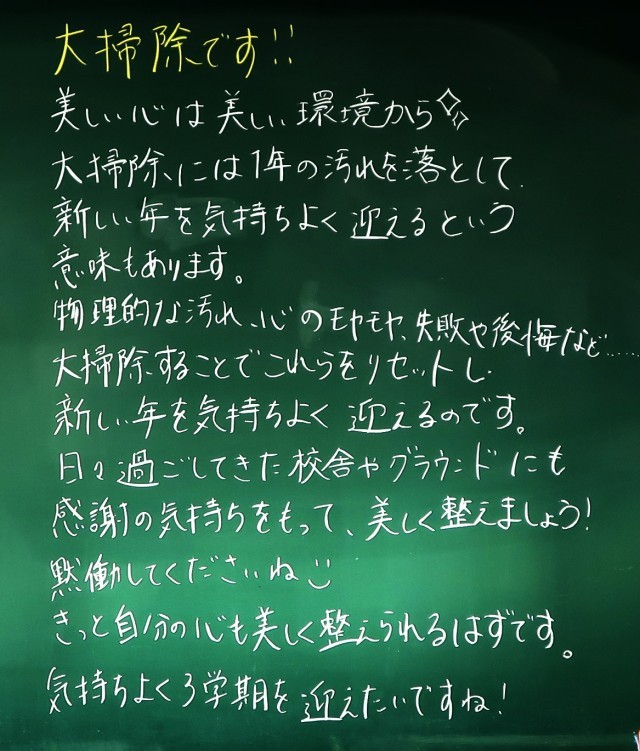 大掃除です!!
美しい心は美しい環境から✧
大掃除には1年の汚れを落として
新しい年を気持ちよく迎えるという
意味もあります。
物理的な汚れ、心のモヤモヤ、失敗や後悔など……
大掃除することでこれらをリセットし
新しい年を気持ちよく迎えるのです。
日々過ごしてきた校舎やグラウンドにも
感謝の気持ちをもって、美しく整えましょう!
黙働してくださいね
きっと自分の心も美しく整えられるはずです。
気持ちよく3学期を迎えたいですね!